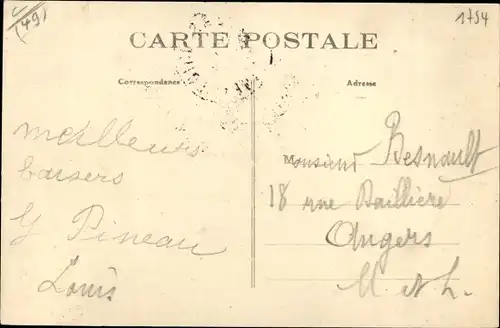 (49)
1754
CARTE POSTALE
Correspondance
Adresse
meilleurs
baisers
G Pineau
Louis
Monsieur Besnault
18 rue Baillière
Angers
M et L.